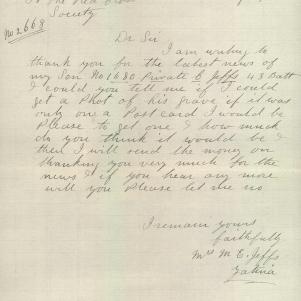 To the Red Cross
Society
No 2668
Dr Sir
I am writing to
thank you for the latest news of
my Son No 1680 Private E Jeffs 48 Batt
I could you tell me if I could
get a Phot of his grave if it was
only one a Postcard I would be
Please to get one & how much
do you think it would be &
then I will send the money on
thanking you very much for the
news & if you hear any more
will you Please let me no
I remain yours
faithfully
Mrs M E. Jeffs
Yatina